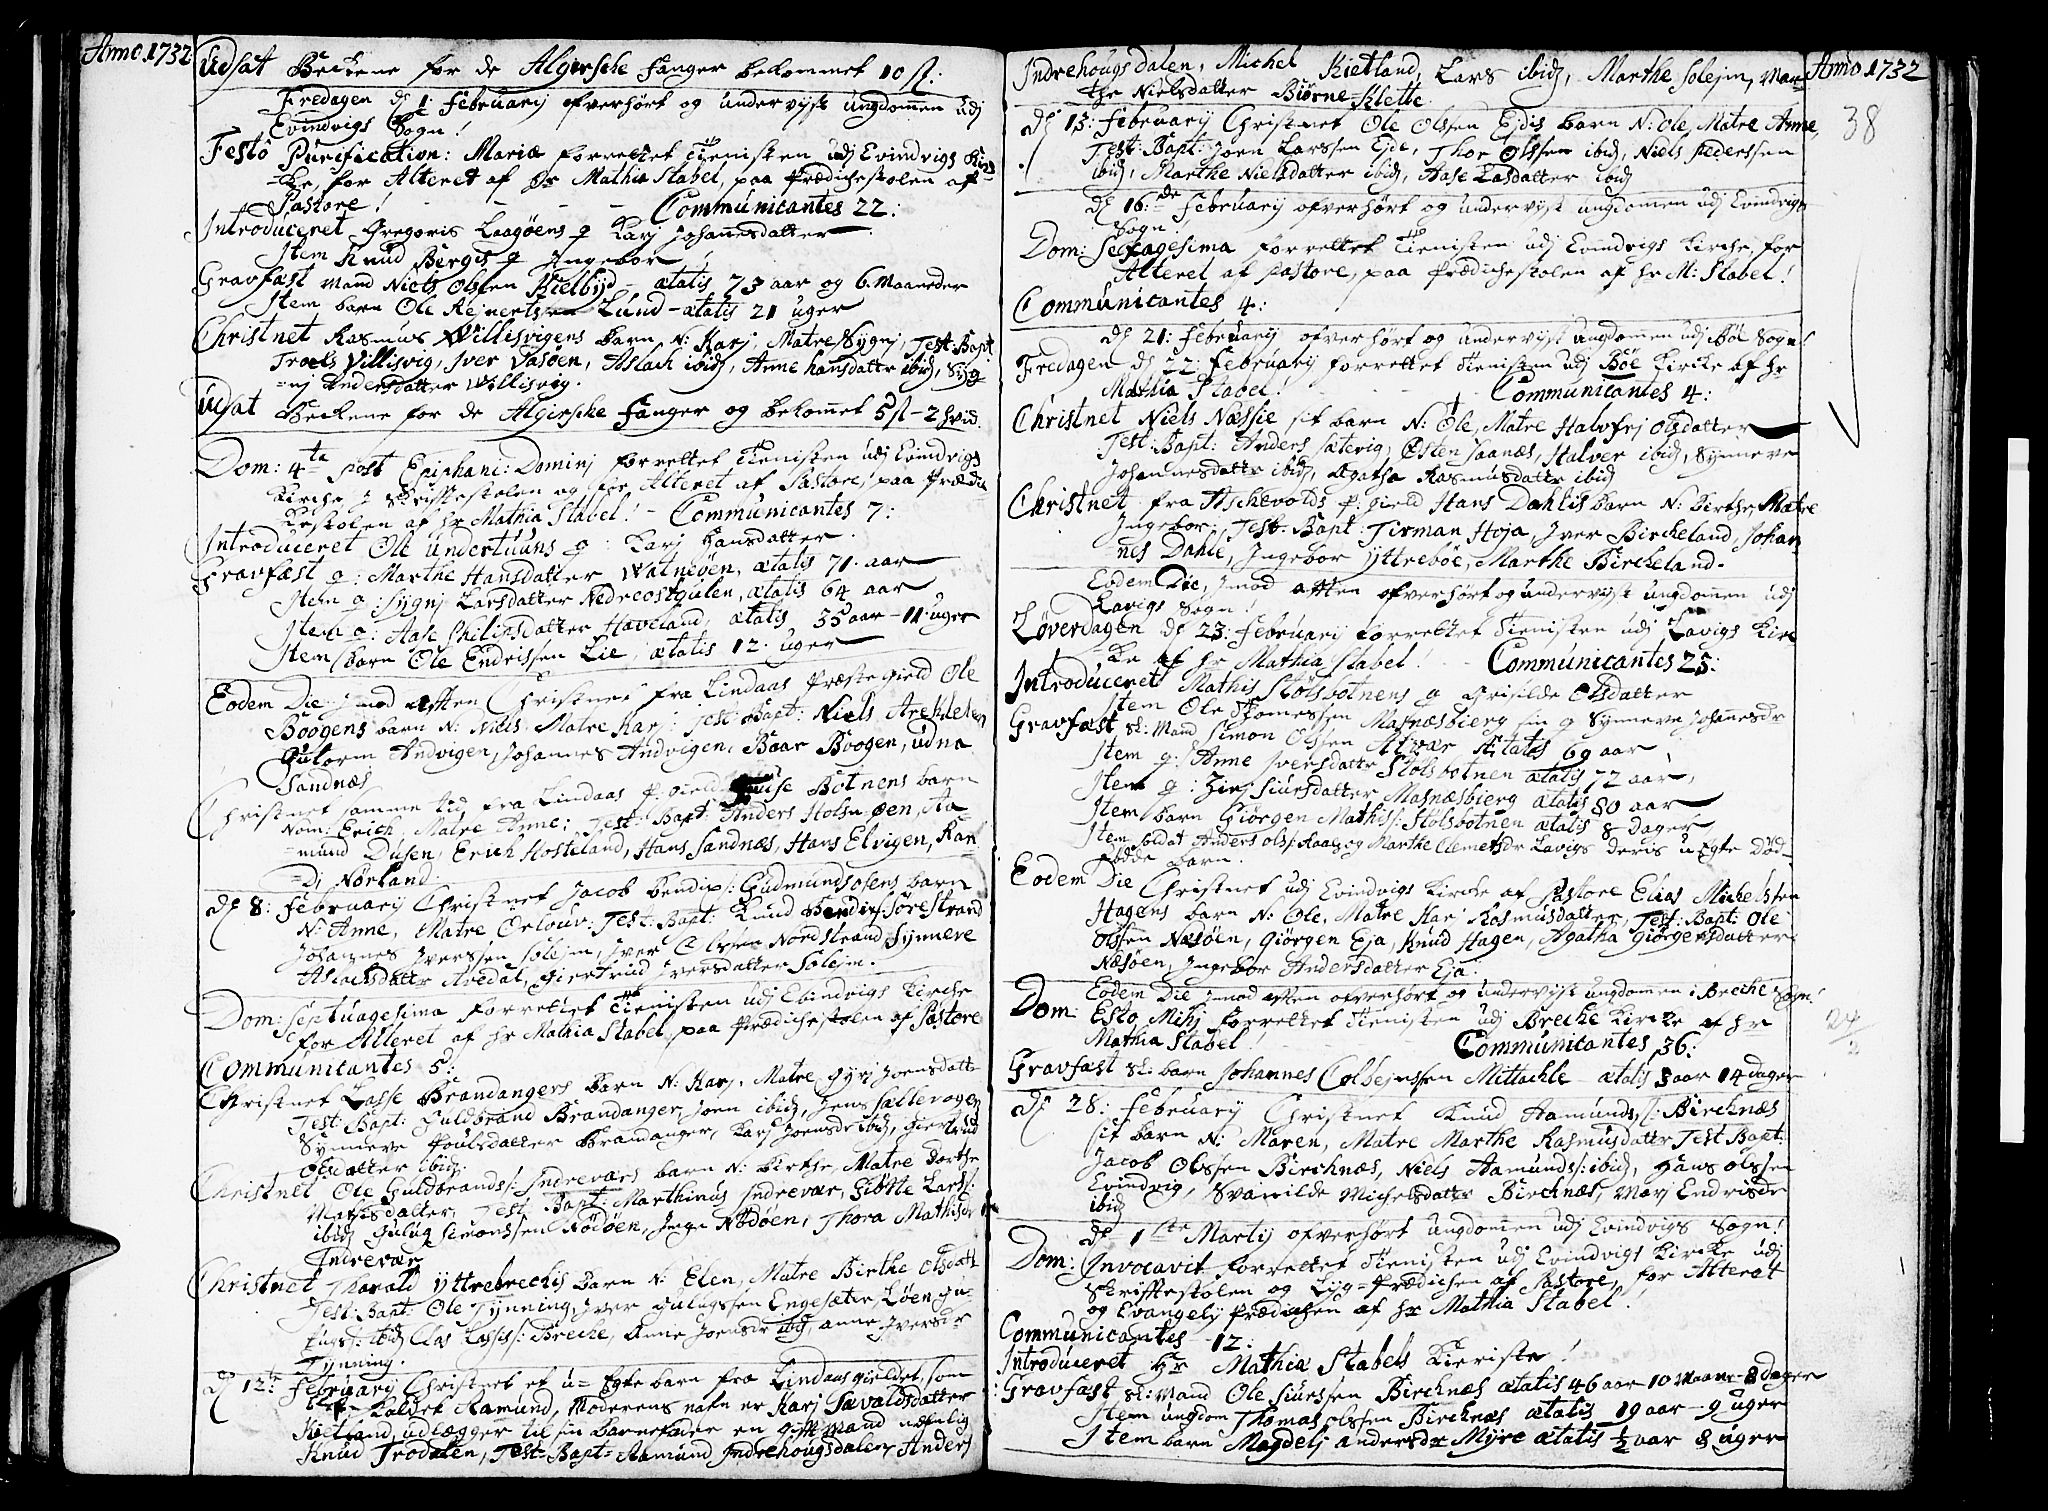 Anno 1732
Udsat Beckene for de Algirske Fanger bekommet 10 ß.
Fredagen d. 1 February ofverhört og undervijst ungdomen udj
Evindvigs Sogn!
Festo Purification: Mariæ forrettet Tienisten udj Evindvigs Kir=
=ke, for Alteret af Hr Mathia Stabel, paa Prædichestolen af
Pastore! - - - Communicantes 22:
Introduceret Gregoris Laagöens q Karj Johannesdatter
Item Knud Bergis q Ingebor
Gravfæst Mand Niels Olssen Kielbyd - ætatis 73 aar og 6 Maaneder
Item barn Ole Rejnertssen Lund - ætatis 21 uger
Christnet Rasmus Willisvigens barn N: Karj, Matre Sygnj, Test: Bapt:
Troels Villisvig, Iver Vasöen, Aslach ibid, Anne Hansdatter ibid, Syg=
=nj Andersdatter Willisvig.
Udsat Beckene for de Algirske Fanger og bekomet 5 ß - 2 hvid.
Dom: 4ta post Epiphani: Dominj forrettet Tienisten udj Evindvigs
Kirche i Skriftestolen og for Alteret af Pastore, paa Prædi=
kestolen af Hr Mathia Stabel! - Communicantes 7:
Introduceret Ole Undertuuns q: Karj Hansdatter
Gravfæst q: Marthe Hansdatter Watnöen, ætatis 71 aar
Item q: Sygnj Larsdatter Nedreostgulen, ætatis 64 aar
Item q: Aase Philipsdatter Haveland, ætatis 35 aar - 11 uger
Item barn Ole Endrissen Lie, ætatis 12 uger
Eodem Die imod aften Christnet fra Lindaas Præstegield Ole
Boogens barn N: Niels Matre Karj: Test: Bapt: Niels Areklelen
Gutorm Andvigen, Johannes Andvigen, Baar Boogen, Udna
Sandnæs
Christnet samme tid fra Lindaas P: gield Botnens barn
Nom: Erich, Matre Anne; Test: Bapt: Anders Holsnöen, Aa=
=mund Dusen, Erich Hosteland, Hans Sandnæs, Hans Elvigen, Ran=
=Dj Nörland.
d. 8: February Christnet Jacob Bendix: Gudmundsosens barn
N: Anne, Matre Orlouv: Test: Bapt: Knud Bendix: Sörestrand
Johannes Iverssen Solejm, Iver Olssen Nordstrand, Synneve
Aslachsdatter Avedal, Giertrud Iversdatter Solejm.
Dom: Septuagesima forrettet Tienisten udj Evindvigs Kirche
for Alteret af Hr Mathia Stabel, paa Prædichestolen af Pastore
Communicantes 5:
Christnet Lasse Brandangers barn N: Karj, Matre Gyrj Joensdatt:
Test: Bapt: Guldbrand Brandanger, Joen ibid, Jens Sællevogen
Synneve Poulsdatter Brandanger, Karj Joensdr ibid, Giertrud
Olsdatter ibid.
Christnet Ole Guldbrands: Indreværs barn N: Birthe, Matre Dorthe
Mathisdatter, Test: Bapt: Marthinus Indrevær, Giötte Lars:
ibid Gulug Simonssen Nödöen, Inge Nödöen, Thora Mathisdr
Indrevær
Christnet Tharald Yttrebrechis barn N: Elen, Matre Birthe Olsdatt:
Test: Bapt: Ole Tynning, Iver Gulugssen Engesæter, Löen Gu=
lugs: ibid Clas Lasses: Breche, Anne Joensdr ibid, Anne Iversdr
Tynning.
d. 12te February Christnet et u=Egte barn fra Lindaasgieldet, som
kaldet Aamund, Moderens nafn er Karj Tavaldsdatter
Kietland, udlægger til sin barnefader en gift mand nemlig
Knud Trodalen, Test: Bapt: Aamund Indrehougsdalen, Anders
Indrehougsdalen, Michel Kietland, Lars ibid, Marthe Solejm, Mar=
the Nielsdatter Biörne=Klette.
Anno 1732
38
d. 13: February Christnet Ole Olssen Ejdis barn N: Ole, Matre Anne,
Test: Bapt: Joen Larssen Eide, Thor Olssen ibid, Niels Pederssen
ibid, Marthe Nielsdatter ibid, Aase Lasdatter ibid
d. 16:de February ofverhört og undervijst ungdomen udj Evindvigs
Sogn!
Dom: Sexagesima forrettet Tienisten udj Evindvigs Kirche, for
Alteret af Pastore, paa Prædichestolen af Hr M: Stabel!
Communicantes 4:
d. 21: February ofverhört og undervijst ungdommen udj Böe Sogn!
Fredagen d. 22: February forrettet Tienisten udj Böe Kirke af Hr
Mathia Stabel! - - Communicantes 4:
Christnet Niels Næssie sit barn N: Ole, Matre Halvfrj Olsdatter
Test: Bapt: Anders Sætevig, Östen Saanæs, Halver ibid, Synneve
Johannesdattr ibid, Agatha Rasmusdatter ibid
Christnet fra Aschevolds P: gield Hans Dahlis barn N: Birthe, Matre
Ingebor: Test: Bapt: Tirman Hoja, Iver Bircheland, Johan=
nes Dahle, Ingebor Yttreböe, Marthe Bircheland.
Eodem Die, imod aften ofverhört og undervijst ungdomen udj
Lavigs Sogn!
Löverdagen d. 23: February forrettet Tienisten udj Lavigs Kirc
=ke af Hr Mathia Stabel! - Communicantes 25:
Introduceret Mathis Stölsbotnens q Grisilde Olsdatter
Item Ole Thomessen Masnæsbierg sin q Synneve Johannesdr
Gravfæst Sl: Mand Simon Olssen Alvær Ætatis 69 aar
Item q: Anne Iversdattr Stölsbotnen ætatis 72 aar,
Item q: Zirj Siursdatter Masnæsbierg ætatis 80 aar
Item barn Giörgen Mathis: Stölsbotnen ætatis 8 dager
Item Soldat Anders Ols: og Marthe Clemetsdr Lavigs deris uEgte Död=
födde barn.
Eodem Die Christnet udj Evindvigs Kircke af Pastore Elias Michelssen
Hagens barn N: Ole, Matre Karj Rasmusdatter, Test: Bapt: Ole
Olssen Næsöen, Giörgen Eja, Knud Hagen, Agatha Giörgensdatter
Næsöen, Ingebor Andersdatter Eja.
Eodem Die imod aften ofverhört og undervijst ungdomen i Breche Sogn!
Dom: Esto Mihj forrettet Tienisten udj Breche Kircke af Hr
Mathia Stabel! - - Communicantes 36:
24/2
Gravfæst Sl: barn Johannes Colbejnssen Mittachle - ætatis 3 aar 14 dager
d. 28: February Christnet Knud Aamunds: Birchnæs
sit barn N: Maren, Matre Marthe Rasmusdatter Test: Bapt:
Jacob Olssen Birchnæs, Niels Aamunds: ibid, Hans Olssen
Evindvig, Svanilde Michelsdatter Birchnæs, Marj Endrisdr
ibid
d. 1ste Martij ofverhört ungdomen udj Evindvigs Sogn!
Dom: Invocavit forrettet Tienisten udj Evindvigs Kircke udj
Skriftestolen og Lijg=Prædichen af Pastore, for Alteret
og Evangelij Prædichen af Hr Mathia Stabel!
Communicantes 12:
Introduceret Hr Mathia Stabels Kieriste!
Gravfæst Sl: Mand Ole Siurssen Birchnæs ætatis 46 aar 10 Maan- 8 dager
Item ungdom Thomas Olssen Birchnæs ætatis 19 aar - 9 uger
Item barn Magdelj Andersdr Myre ætatis ½ aar 8 uger